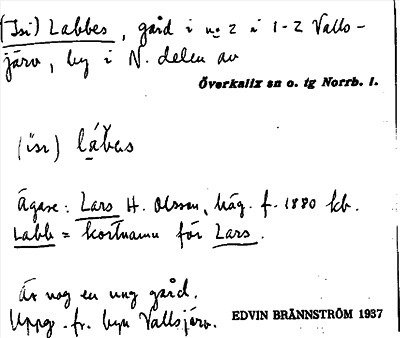 (Isi) Labbes, gård i no 2 i 1-2 Valls-
järv, by i N. delen av
Överkalix sn o. tg Norrb. l.
(ïsɩ) lábas
Ägare: Lars H. Olsson, häg. f. 1880 kb.
Labb = kortnamn för Lars.
Är nog en ung gård.
Uppg. fr. byn Vallsjärv.
EDVIN BRÄNNSTRÖM 1937